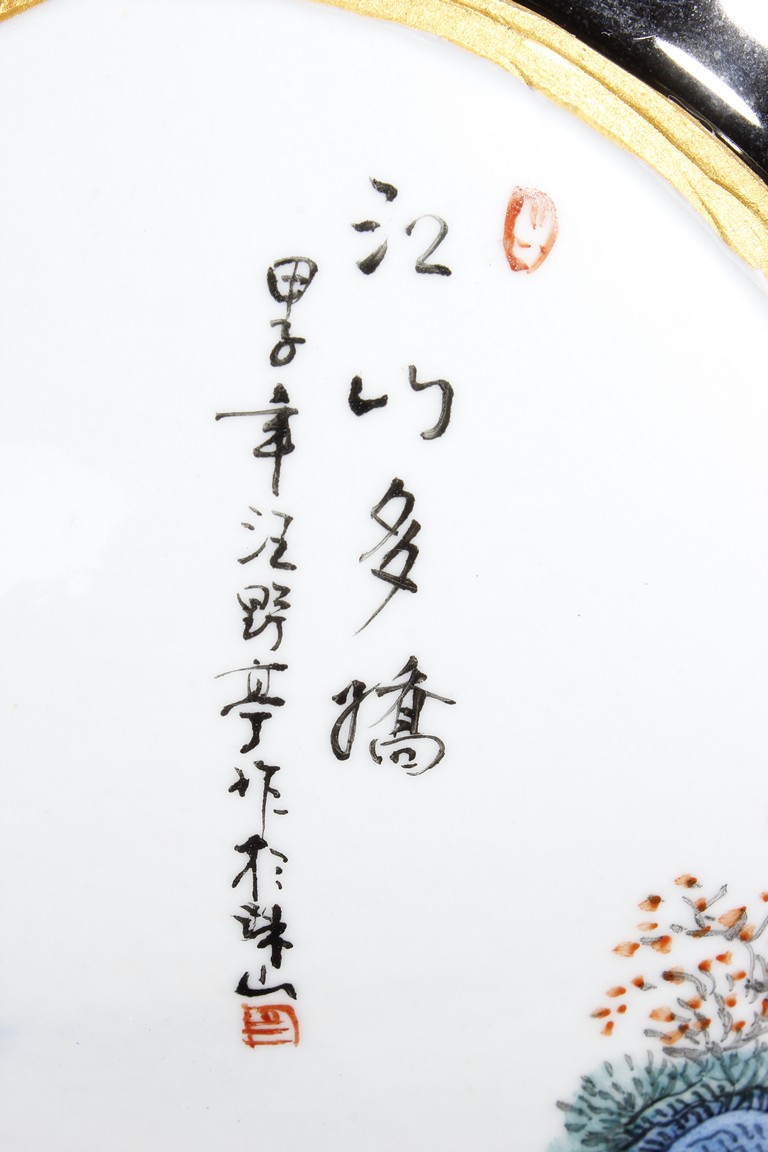 江山多嬌
甲子年汪野亭作於珠山